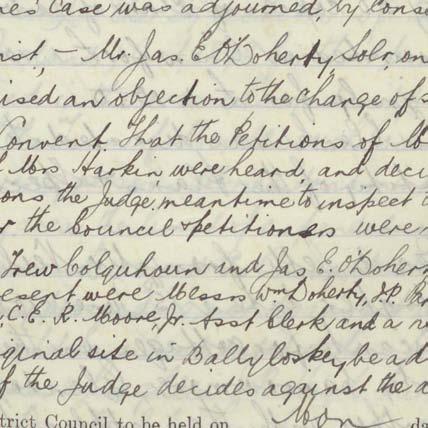 nes' Case was adjourned, by Cons
ist, - Mr. Jas. E. O'Doherty, Solr, on
ised an objection to the change of s
Convent, That the Petitions of M
Mrs Harkin were heard, and deci
ons the Judge, meantime to inspect
r the Council & petitioners were
Trew Colquhoun and Jas E. O'Doher
esent were Messrs Wm Doherty, J.P.
C. E. R. Moore, Jr. Asst Clerk and a
iginal site in Ballyloskey, be ad
f the Judge decides against the a
trict Council to be held on
da